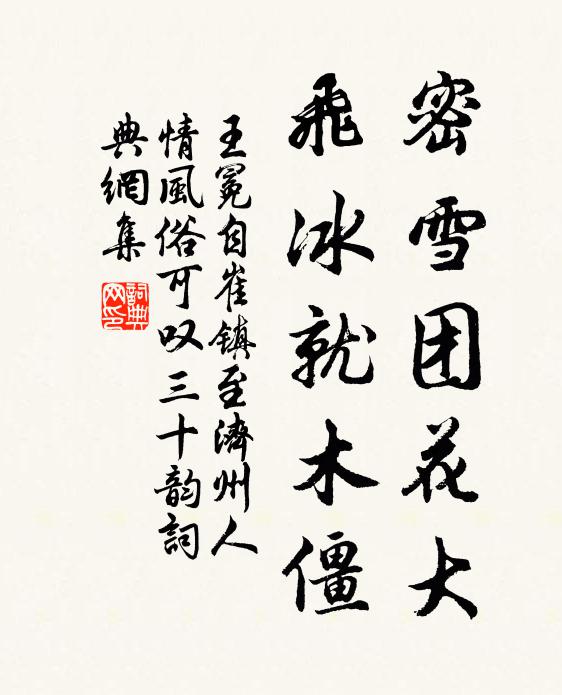 密雪团花大
飛冰就木僵
王冕自崔镇至濟州人
情風俗可叹三十韵詞
典網集
詞典
网印